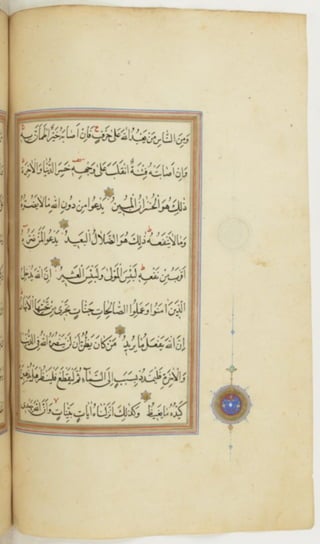 ومن الناس من يعبد الله على حرف فان اصابه خير اطمان به
وان اصابته فتنة انقلب على وجهه خسر الدنيا والاخرة
ذلك هو الخسران المبين يدعوا من دون الله ما لا يضره
وما لا ينفعه ذلك هو الضلال البعيد يدعوا لمن ضره
اقرب من نفعه لبئس المولى ولبئس العشير ان الله يدخل
الذين امنوا وعملوا الصالحات جنات تجري من تحتها الانهار
ان الله يفعل ما يريد من كان يظن ان لن ينصره الله في الدنيا
والاخرة فليمدد بسبب الى السماء ثم ليقطع فلينظر هل يذهبن
كيده ما يغيظ وكذلك انزلناه ايات بينات وان الله يهدي